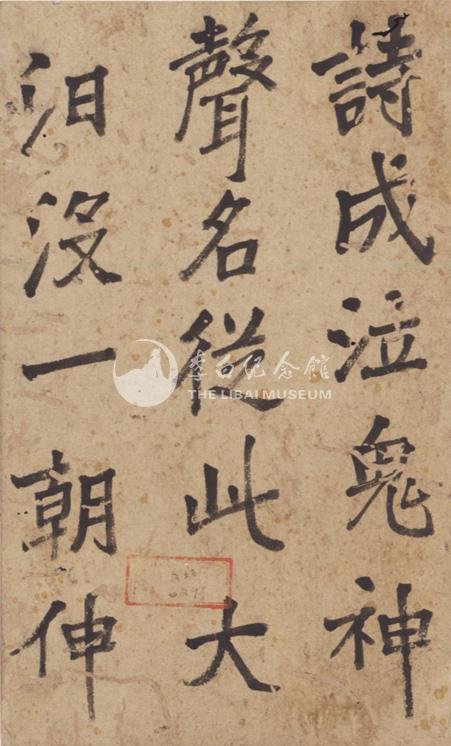 詩成泣鬼神
聲名從此大
汩没一朝伸
李白纪念館
THE LIBAI MUSEUM